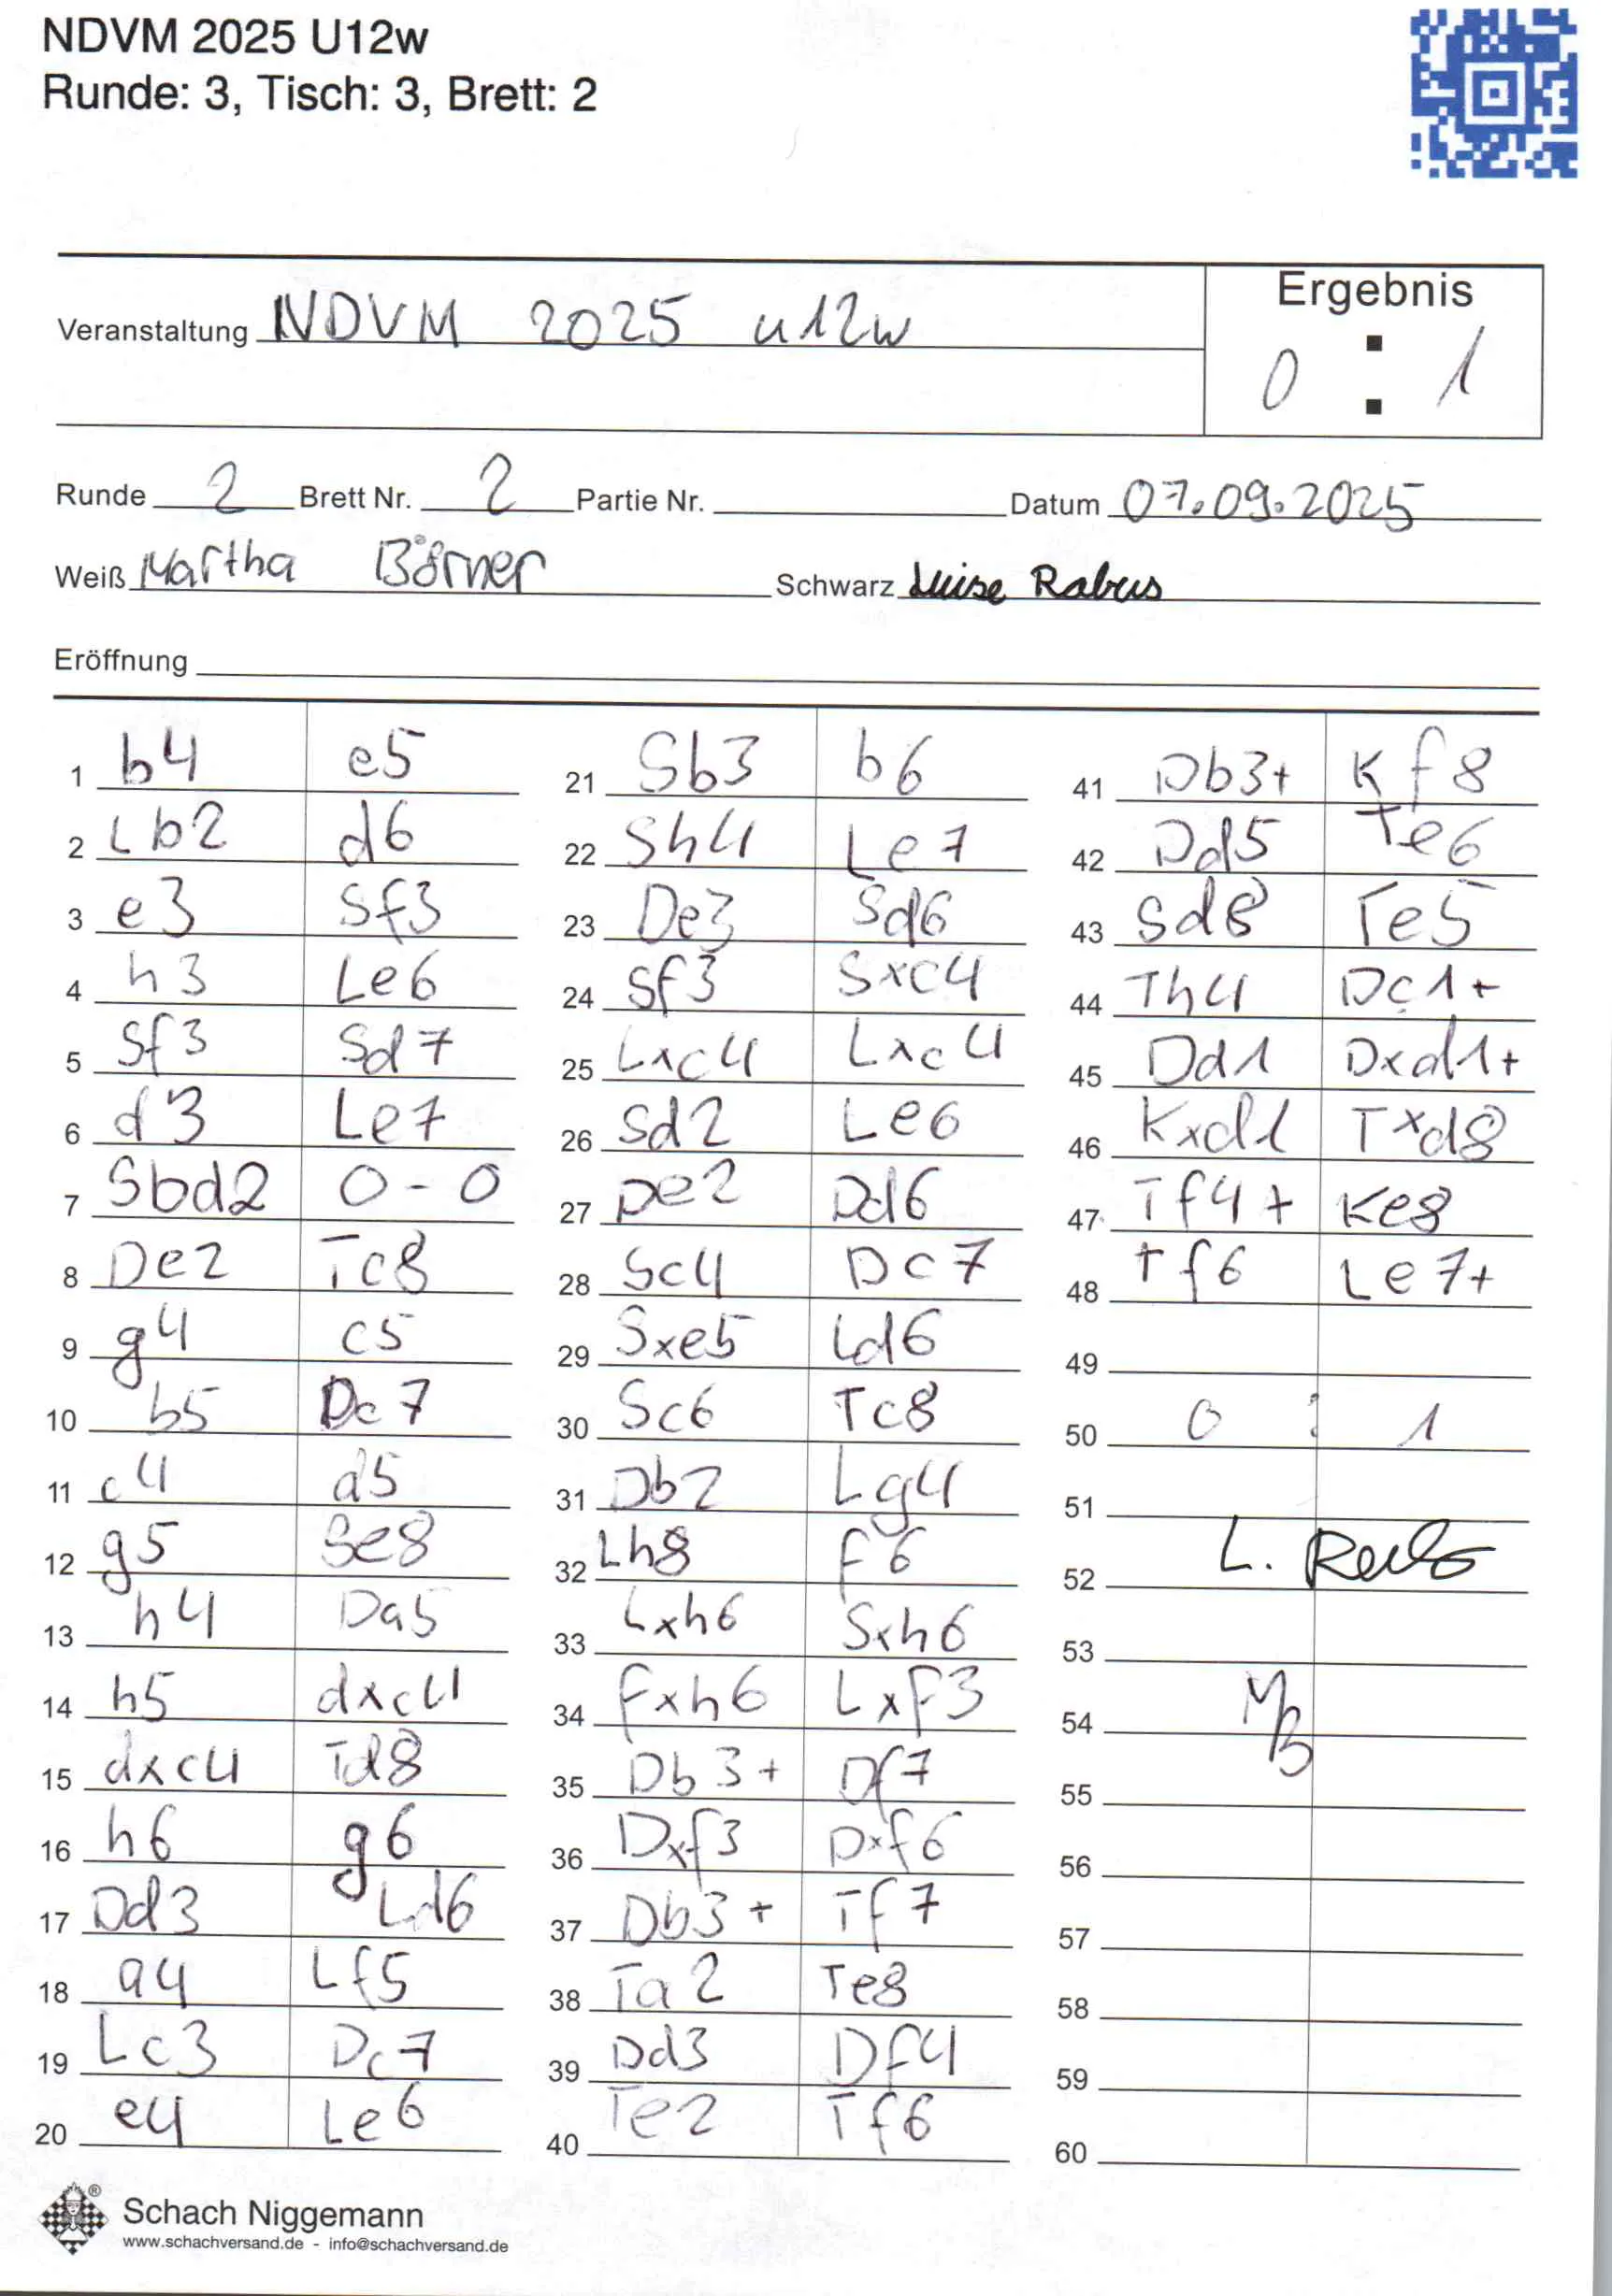 NDVM 2025 U12w
Runde: 3, Tisch: 3, Brett: 2
Veranstaltung NDVM 2025 u12w
Ergebnis
0 : 1
Runde 2 Brett Nr. 2 Partie Nr. Datum 07.09.2025
Weiß Martha Börner Schwarz Luise Rabus
Eröffnung
1 b4 e5
2 Lb2 d6
3 e3 Sf3
4 h3 Le6
5 Sf3 Sd7
6 d3 Le7
7 Sbd2 0-0
8 De2 Tc8
9 g4 c5
10 b5 Dc7
11 c4 d5
12 g5 Se8
13 h4 Da5
14 h5 dxc4
15 dxc4 Td8
16 h6 g6
17 Dd3 Ld6
18 a4 Lf5
19 Lc3 Dc7
20 e4 Le6
21 Sb3 b6
22 Sh4 Le7
23 De3 Sd6
24 Sf3 Sxc4
25 Lxc4 Lxc4
26 Sd2 Le6
27 De2 Dd6
28 Sc4 Dc7
29 Sxe5 Ld6
30 Sc6 Tc8
31 Db2 Lg4
32 Lh8 f6
33 Lxh6 Sxh6
34 fxh6 Lxf3
35 Db3+ Df7
36 Dxf3 Dxf6
37 Db3+ Tf7
38 Ta2 Te8
39 Dd3 Df4
40 Te2 Tf6
41 Db3+ Kf8
42 Dd5 Te6
43 Sd8 Te5
44 Th4 Dc1+
45 Dd1 Dxd1+
46 Kxd1 Txd8
47 Tf4+ Ke8
48 Tf6 Le7+
49
50 0 : 1
51
52 L.
53
54 MB
55
56
57
58
59
60
Schach Niggemann
www.schachversand.de - info@schachversand.de